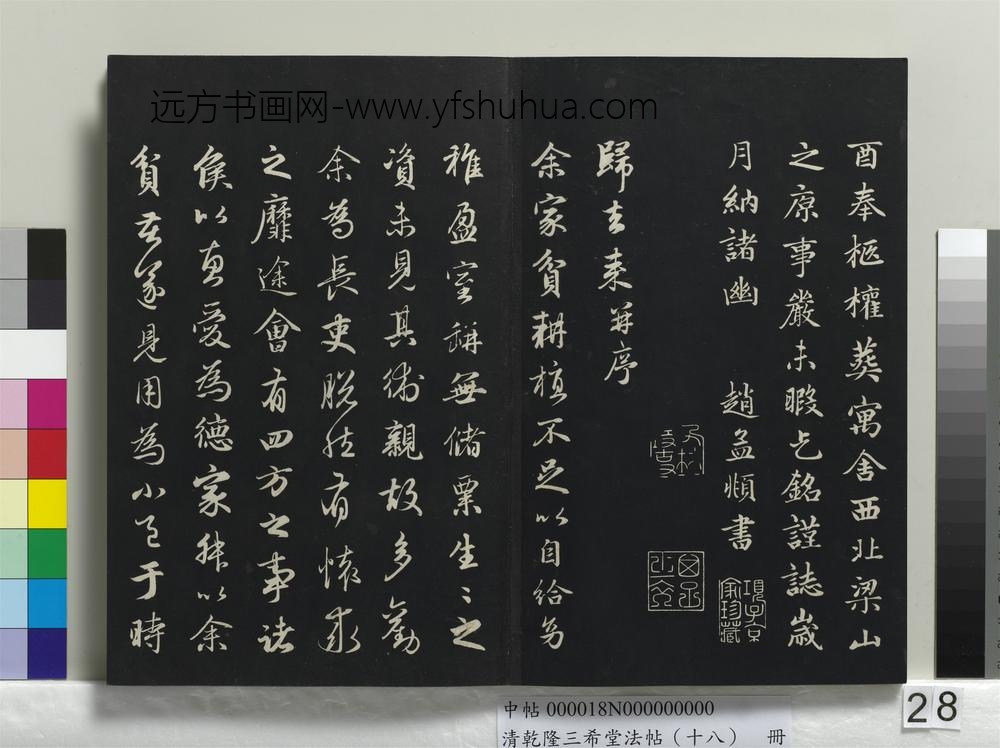 远方书画网-www.yfshuhua.com
酉奉柩權葬寓舍西北梁山
之原事嚴未暇乞銘謹誌歲
月納諸幽 趙孟頫書
項子京家珍藏
歸去来并序
余家貧耕植不足以自給幼
稚盈室缾無儲粟生〻之
資未見其術親故多勸
余為長吏脫然有懷求
之靡途會有四方之事諸
侯以惠愛為德家叔以余
貧苦遂見用為小邑于時
中帖 000018N000000000
清乾隆三希堂法帖（十八） 冊
28